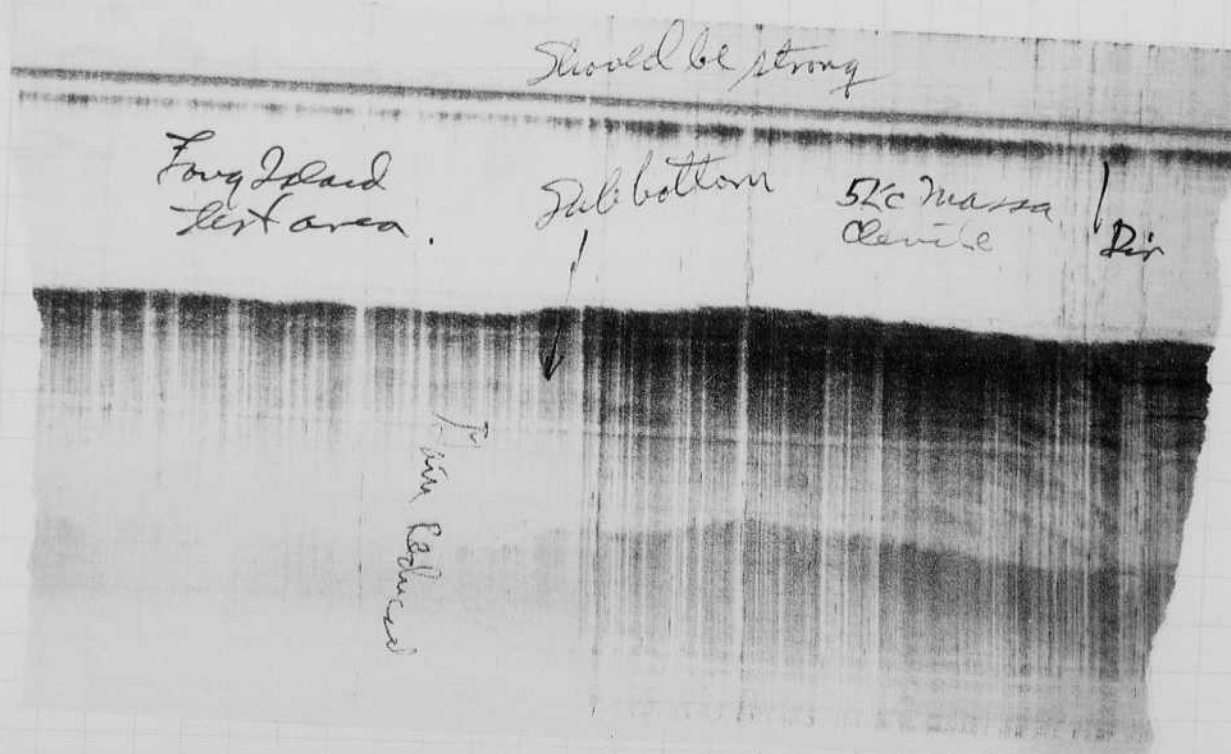 Should be strong
Long Island
test area.
Sub bottom
5Kc Massa
Clevite
Dir
Gain Reduced